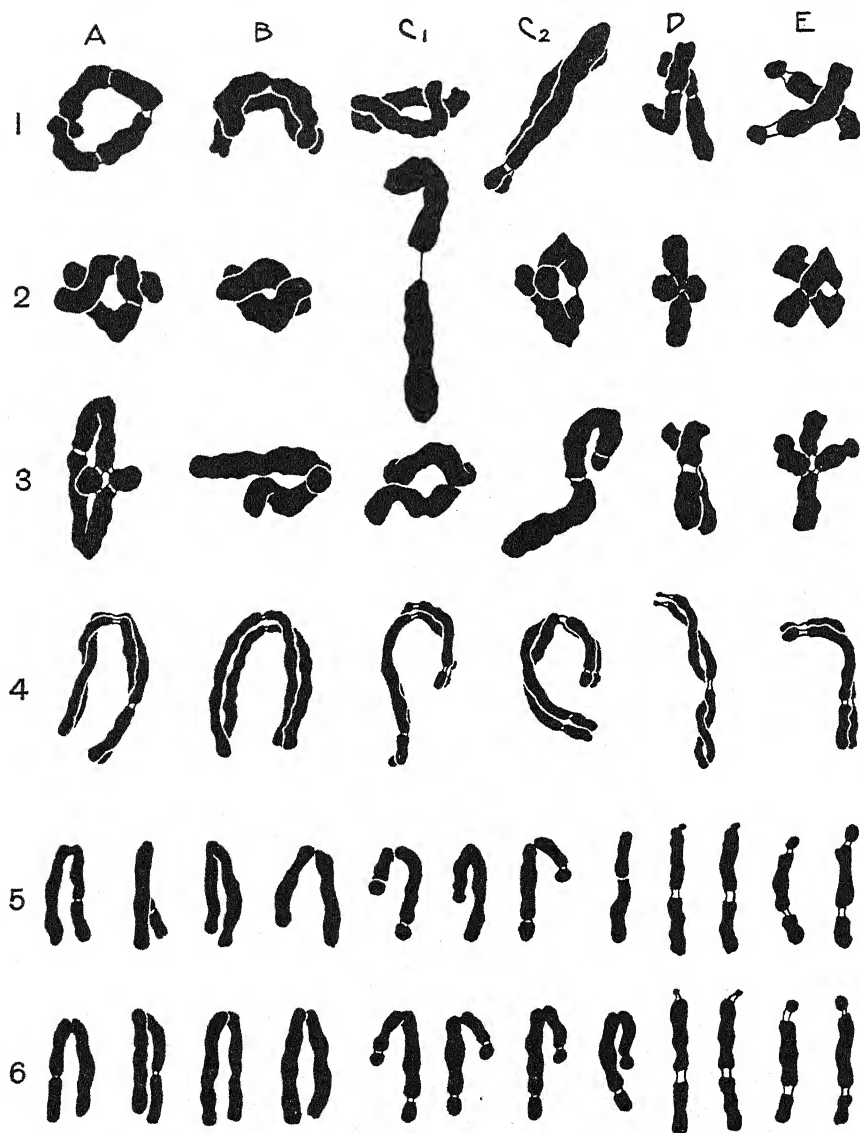 A B C1 C2 D E
1
2
3
4
5
6